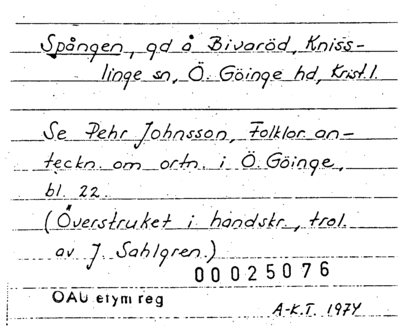 Spången, gd å Bivaröd, Kniss-
linge sn, Ö. Göinge hd, Krist. l.
Se Pehr Johnsson, Folklor. an-
teckn. om ortn. i Ö. Göinge,
bl. 22.
(Överstruket i handskr., trol.
av J. Sahlgren.)
00025076
OAU etym reg
A-K.T. 1974